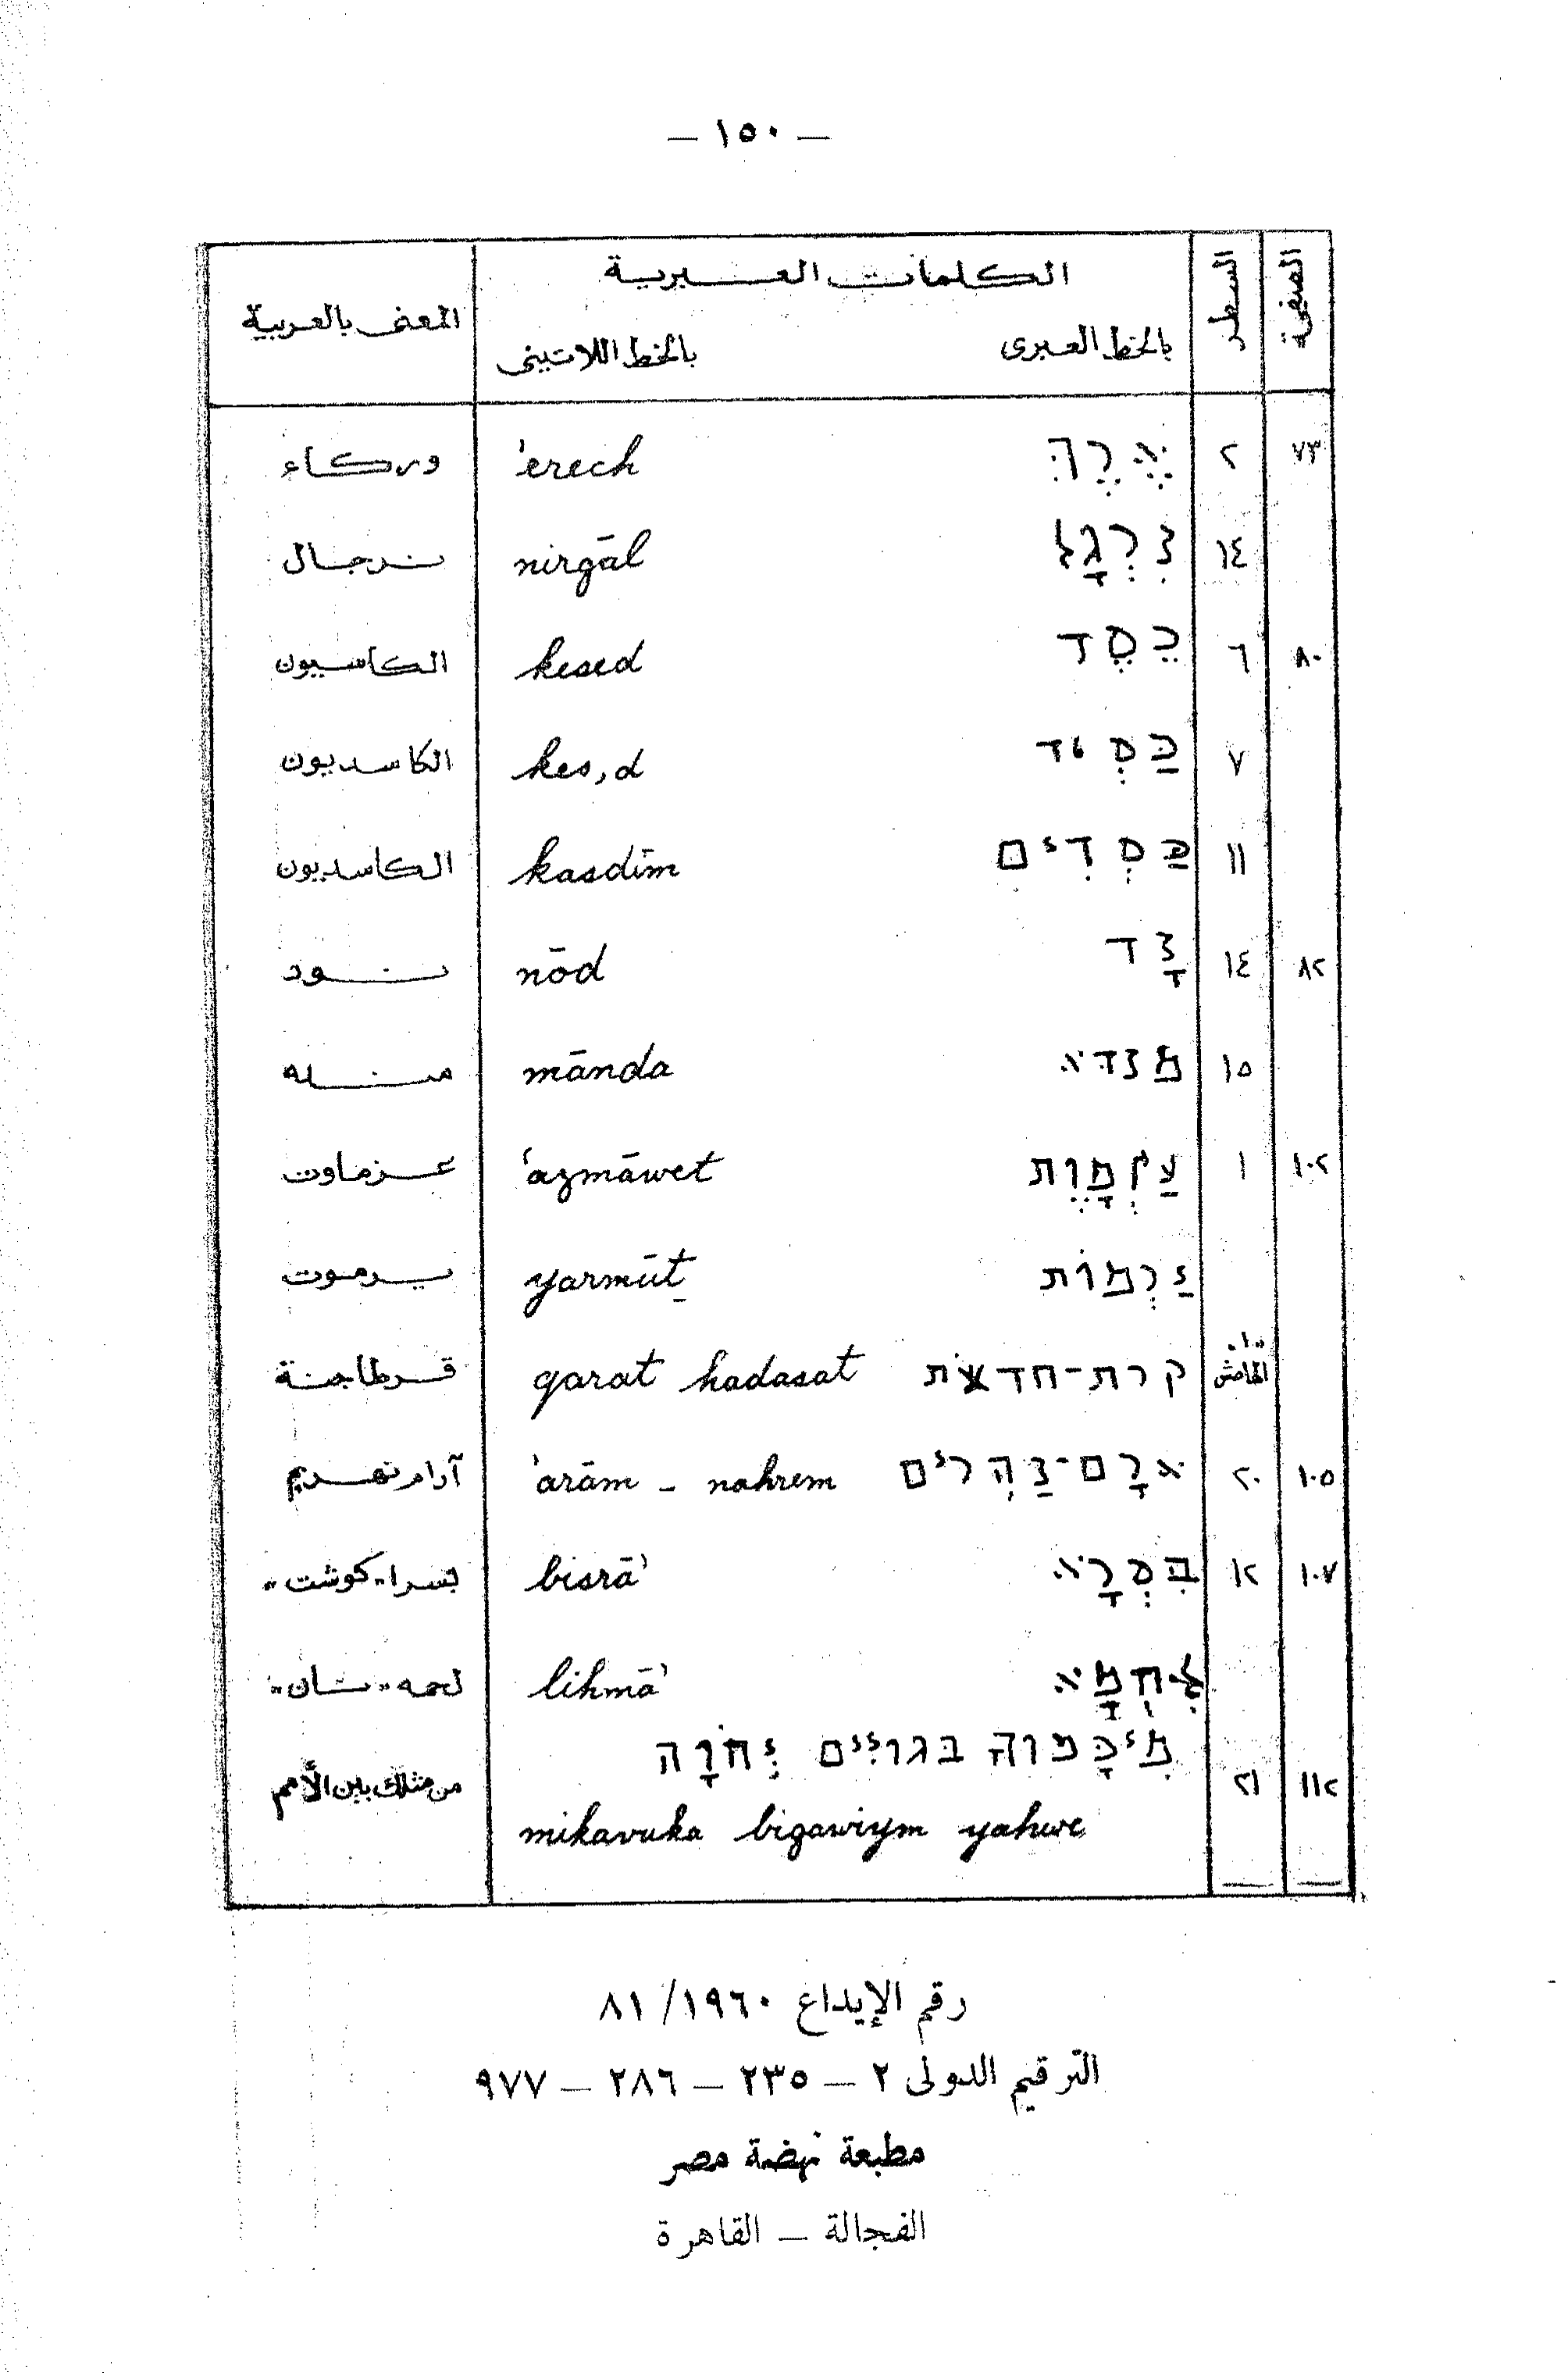 — ١٥٠ —
الصفحة السطر الكلمات العبرية المعنى بالعربية
بالخط العبرى بالخط اللاتينى
٧٣ ٢ אֶרֶךְ 'erech وركاء
١٤ נִרְגָל nirgāl نرجال
٨٠ ٦ כֵסֶד kesed الكاسيون
٧ kes,d الكاسديون
١١ כַּסְדִים kasdīm الكاسديون
٨٢ ١٤ נָד nōd نود
١٥ מַנדא mānda منده
١٠٢ ١ עַזְמָוֶת 'azmāwet عزماوت
יַרְמוֹת yarmūṯ يرموت
١٠ الهامش קרת-חדשׁת qarat hadasat قرطاجنة
١٠٥ ٢٠ ארָם-נַהְרים 'arām - nahrem آرام نهريم
١٠٧ ١٢ בִּסְרָא bisrā' بسرا "كوشت"
לִחְמָא lihmā' لحمه "نان"
١١٢ ٢١ מִיכָּמוךָּ בגויים יְהֹוָה من مثلك بين الأمم
mikavuka bigawiym yahwe
رقم الإيداع ١٩٦٠/ ٨١
الترقيم الدولى ٢ — ٢٣٥ — ٢٨٦ — ٩٧٧
مطبعة نهضة مصر
الفجالة — القاهرة